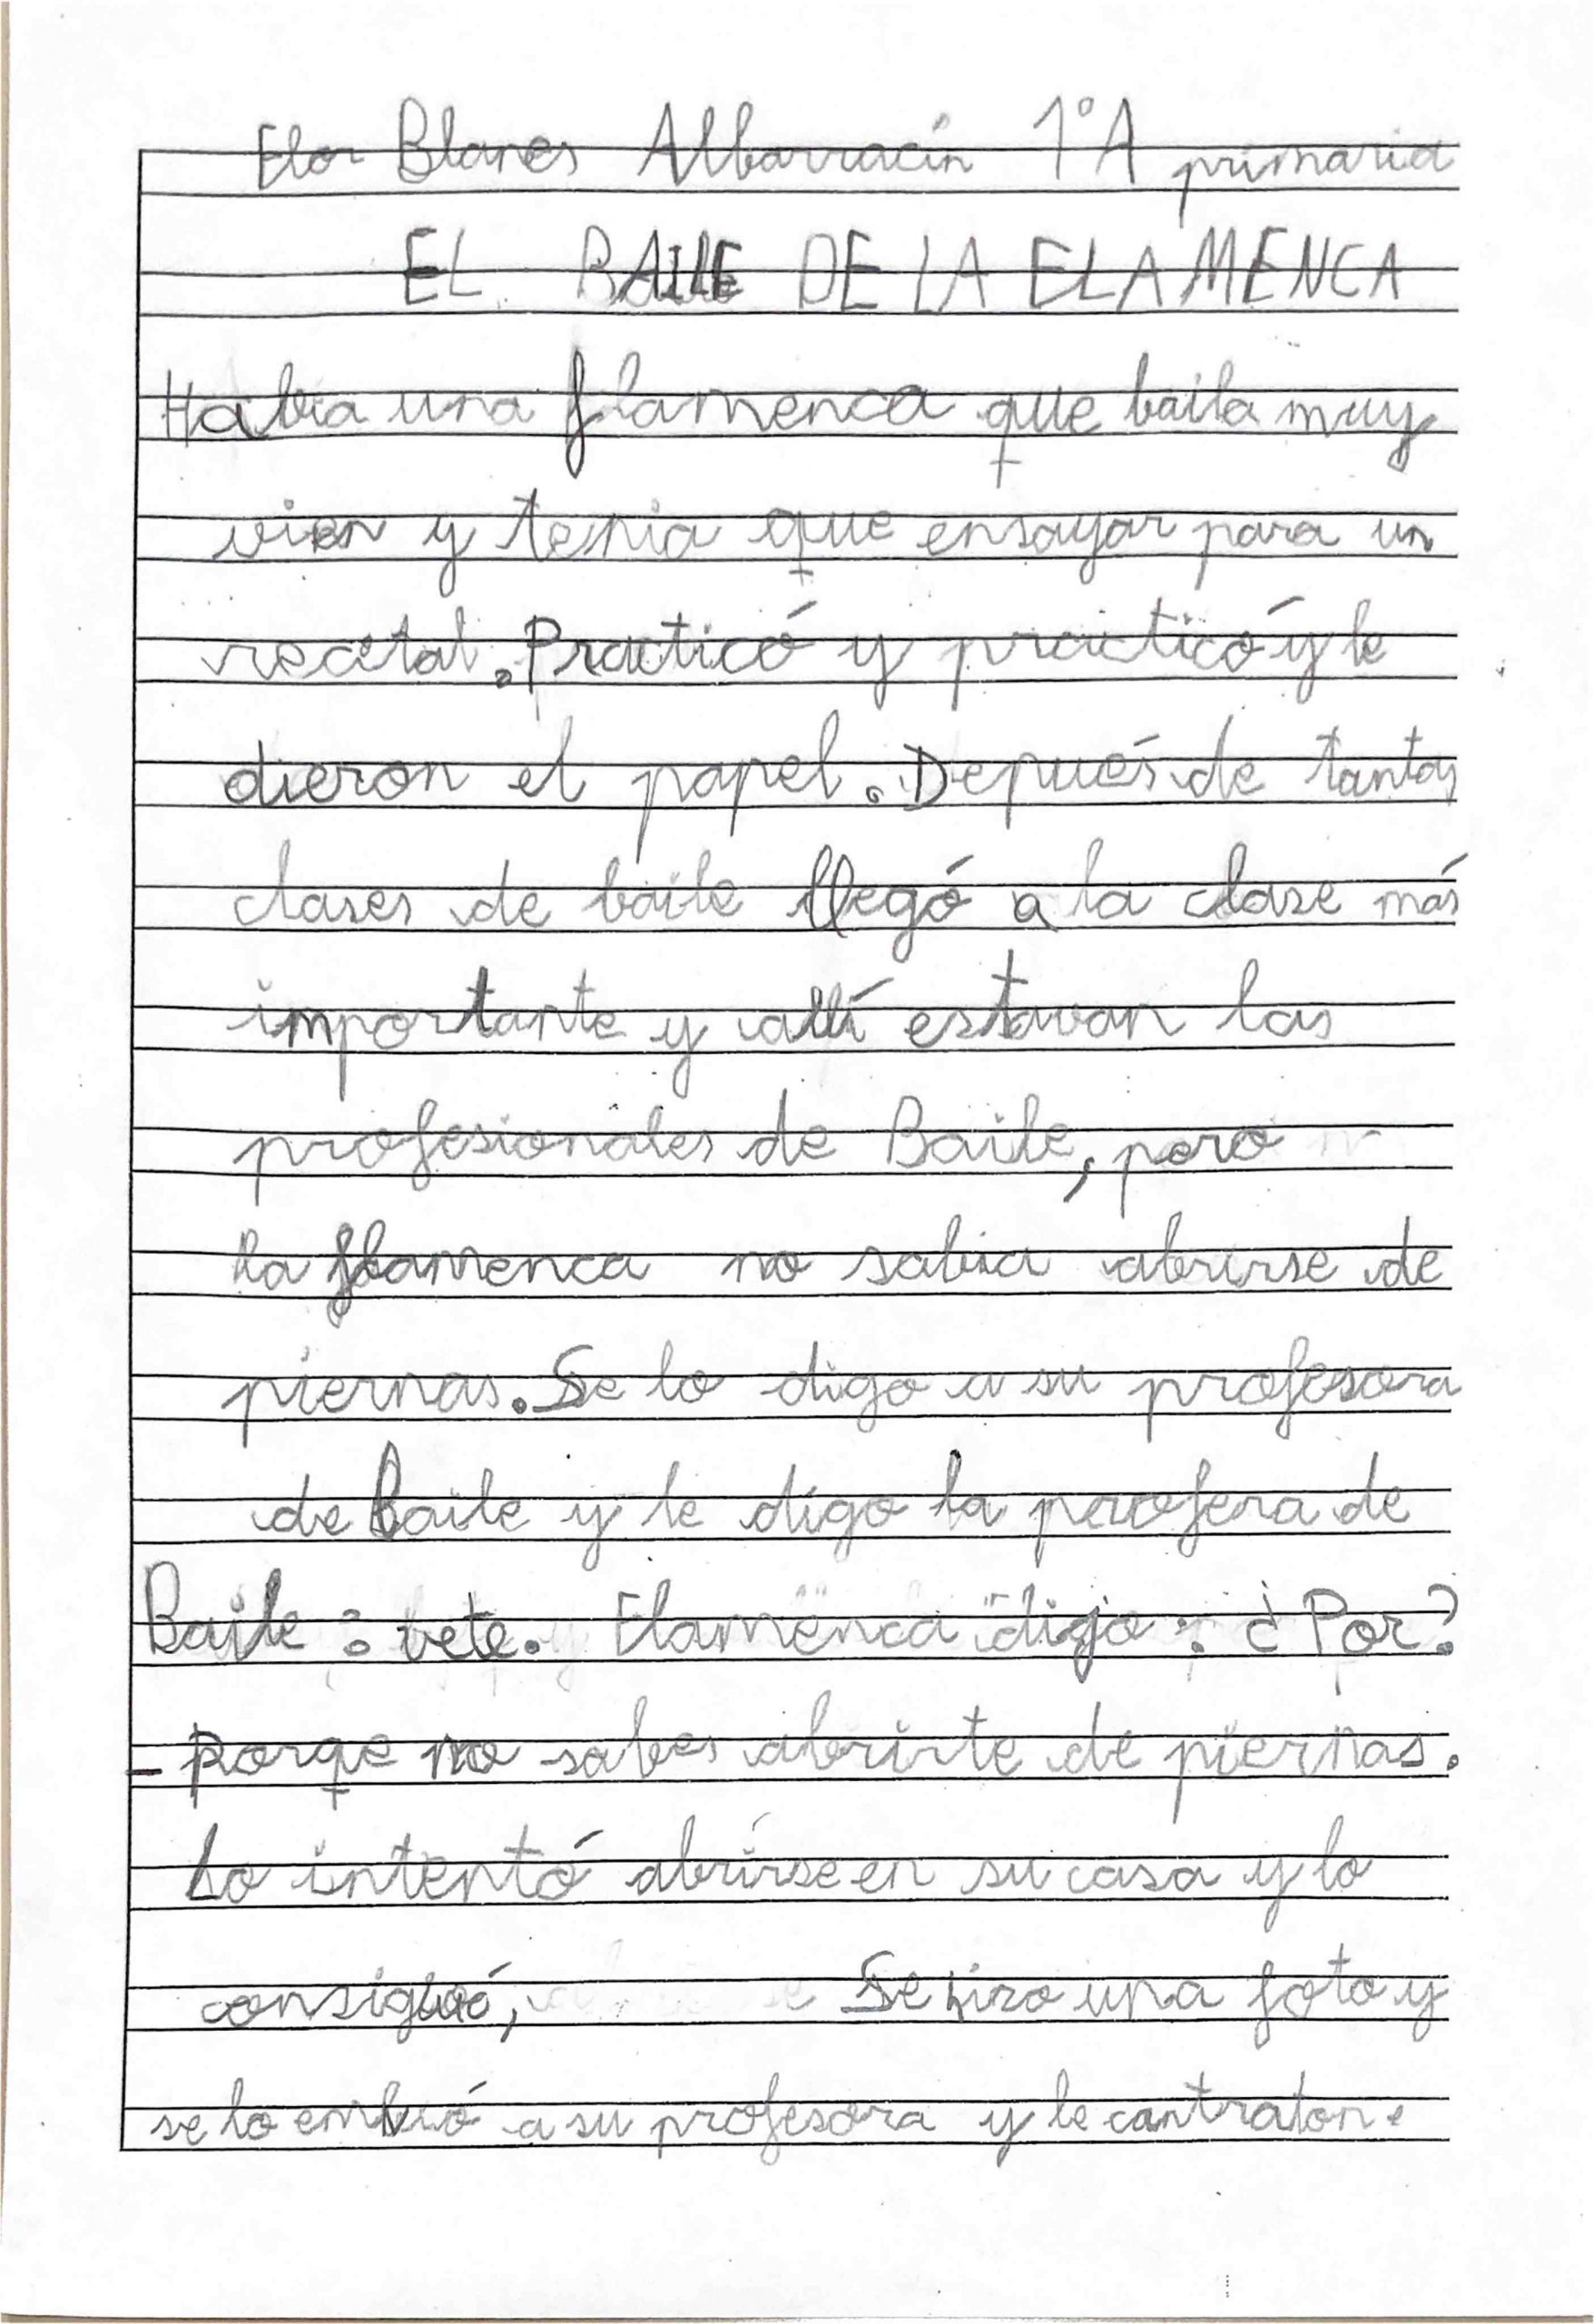 Flor Blanes Albarracín 1ºA primaria
EL BAILE DE LA FLAMENCA
Habia una flamenca que baila muy
vien y tenia que ensayar para un
recital. Practicó y practicó y le
dieron el papel. Depués de tantas
clases de baile llegó a la clase más
importante y allí estavan las
profesionales de Baile, pero
la flamenca no sabia abrirse de
piernas. Se lo digo a su profesora
de baile y le digo la profera de
Baile: vete. Flamenca dijo: ¿Por?
- Porqe no sabes abrirte de piernas.
Lo intentó abrirse en su casa y lo
consiguió, Se hizo una foto y
se lo embió a su profesora y le contraton.